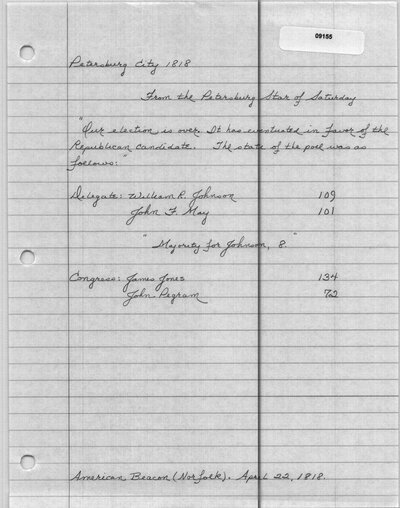 09155
Petersburg City 1818
From the Petersburg Star of Saturday
"Our election is over. It has eventuated in favor of the
Republican candidate. The state of the poll was as
follows:"
Delegate: William R. Johnson 109
John F. May 101
"Majority for Johnson, 8."
Congress: James Jones 134
John Pegram 72
American Beacon (Norfolk). April 22, 1818.